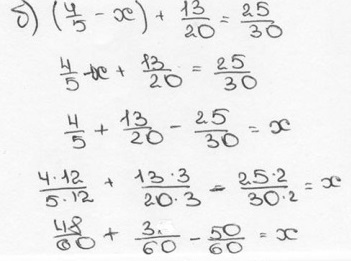 б) (4/5 - x) + 13/20 = 25/30
4/5 - x + 13/20 = 25/30
4/5 + 13/20 - 25/30 = x
4·12/5·12 + 13·3/20·3 - 25·2/30·2 = x
48/60 + 3./60 - 50/60 = x